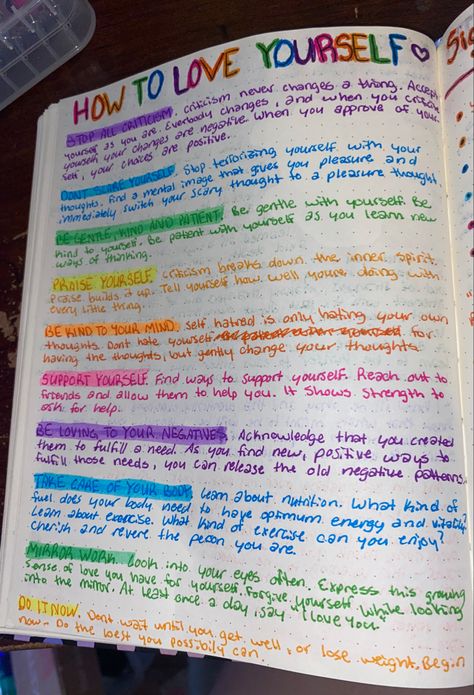 HOW TO LOVE YOURSELF
STOP ALL CRITICISM. criticism never changes a thing. Accept
yourself as you are. Everybody changes, and when you criticize
yourself your changes are negative. When you approve of your
self, your choices are positive.
DON'T SCARE YOURSELF. Stop terrorizing yourself with your
thoughts. find a mental image that gives you pleasure and
immediately switch your scary thought to a pleasure thought.
BE GENTLE, KIND AND PATIENT. Be gentle with yourself. Be
kind to yourself. Be patient with yourself as you learn new
ways of thinking.
PRAISE YOURSELF. Criticism breaks down the inner spirit.
Praise builds it up. Tell yourself how well youre doing with
every little thing.
BE KIND TO YOUR MIND. self hatred is only hating your own
thoughts. Dont hate yourself for
having the thoughts, but gently change your thoughts.
SUPPORT YOURSELF. Find ways to support yourself. Reach out to
friends and allow them to help you. It shows strength to
ask for help.
BE LOVING TO YOUR NEGATIVES. Acknowledge that you created
them to fulfill a need. As you find new, positive ways to
fulfill those needs, you can release the old negative patterns.
TAKE CARE OF YOUR BODY. Learn about nutrition. What kind of
fuel does your body need to have optimum energy and vitality
Learn about exercise. What kind of exercise can you enjoy?
cherish and revere the person you are.
MIRROR WORK. Look into your eyes often. Express this growing
sense of love you have for yourself. Forgive yourself while looking
into the mirror. At least once a day, say "I love you"
DO IT NOW. Dont wait until you get well, or lose weight. Begin
now. Do the best you possibily can.